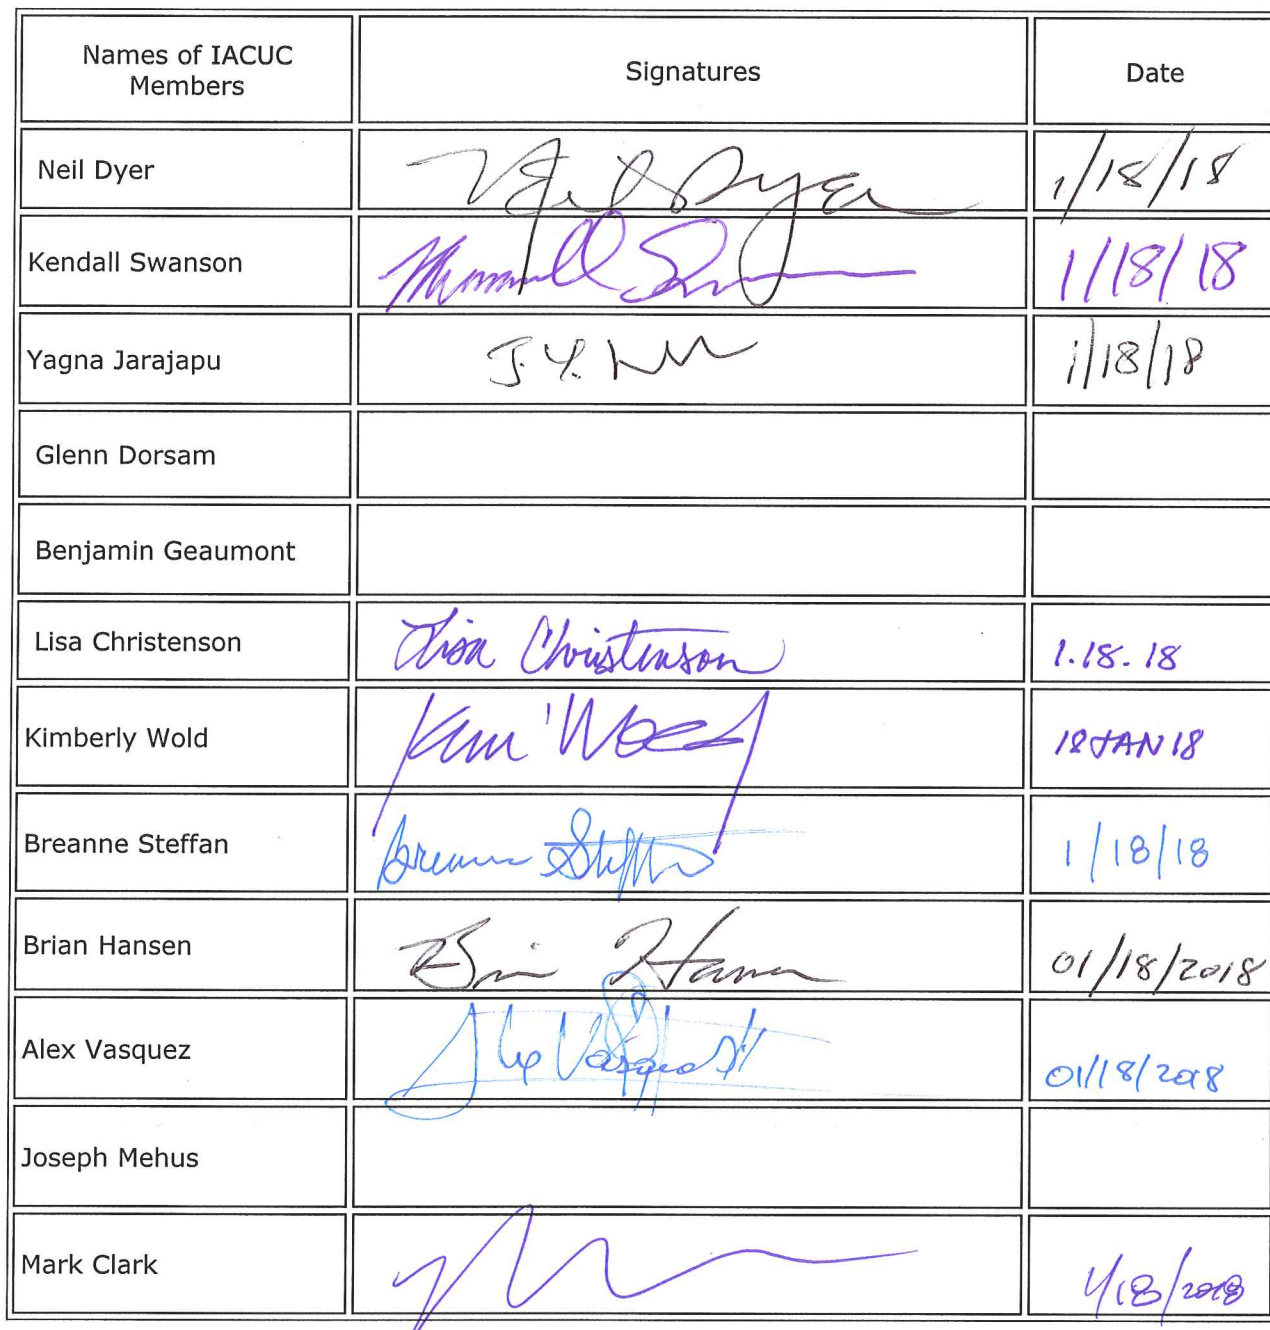 Names of IACUC
Members
Signatures
Date
Neil Dyer
Neil Dyer
1/18/18
Kendall Swanson
1/18/18
Yagna Jarajapu
J.Y.
1/18/18
Glenn Dorsam
Benjamin Geaumont
Lisa Christenson
Lisa Christenson
1.18.18
Kimberly Wold
Kim Wold
18JAN18
Breanne Steffan
Breanne Steffan
1/18/18
Brian Hansen
Brian Hansen
01/18/2018
Alex Vasquez
Alex Vasquez
01/18/2018
Joseph Mehus
Mark Clark
1/18/2018